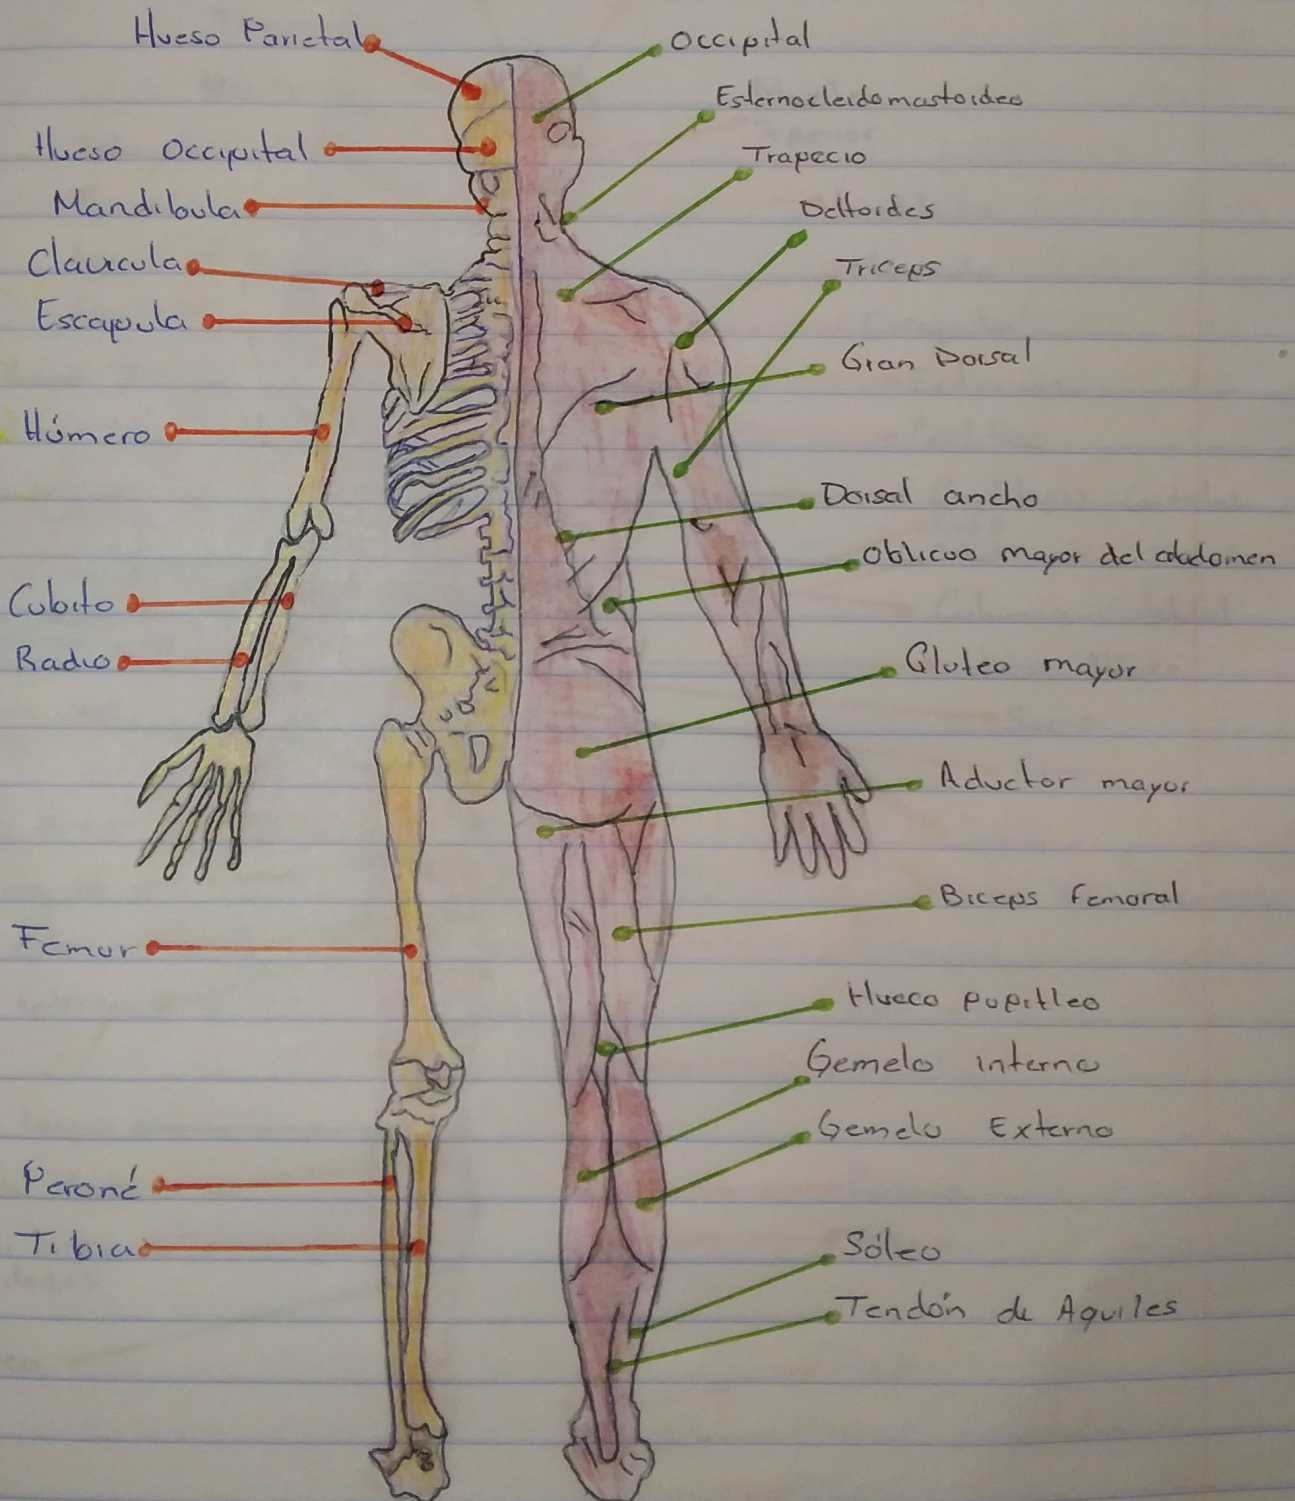 Hueso Parietal
Hueso Occipital
Mandibula
Clavicula
Escapula
Húmero
Cubito
Radio
Femur
Peroné
Tibia
Occipital
Esternocleidomastoideo
Trapecio
Deltoides
Triceps
Gran Dorsal
Dorsal ancho
Oblicuo mayor del abdomen
Gluteo mayor
Aductor mayor
Biceps femoral
Hueco popitleo
Gemelo interno
Gemelo Externo
Sóleo
Tendón de Aquiles